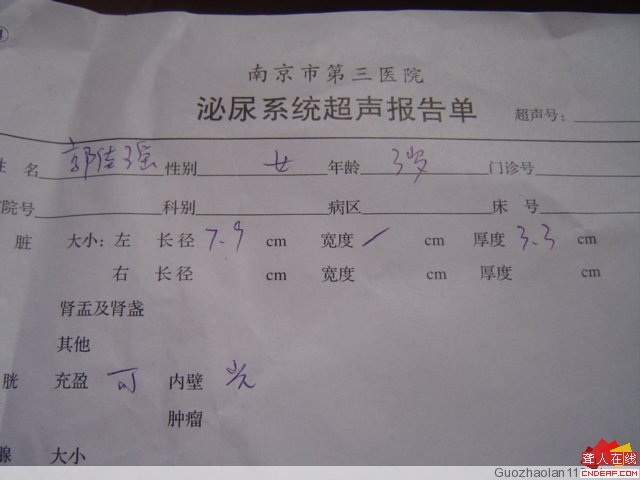 南京市第三医院
泌尿系统超声报告单
超声号:
姓 名 郭佳瑶 性别 女 年龄 3岁 门诊号
院号 科别 病区 床 号
脏 大小: 左 长径 7.9 cm 宽度 / cm 厚度 3.3 cm
右 长径 cm 宽度 cm 厚度 cm
肾盂及肾盏
其他
胱 充盈 可 内壁 光
肿瘤
腺 大小
聋人在线
CNDEAF.COM
Guozhaolan11